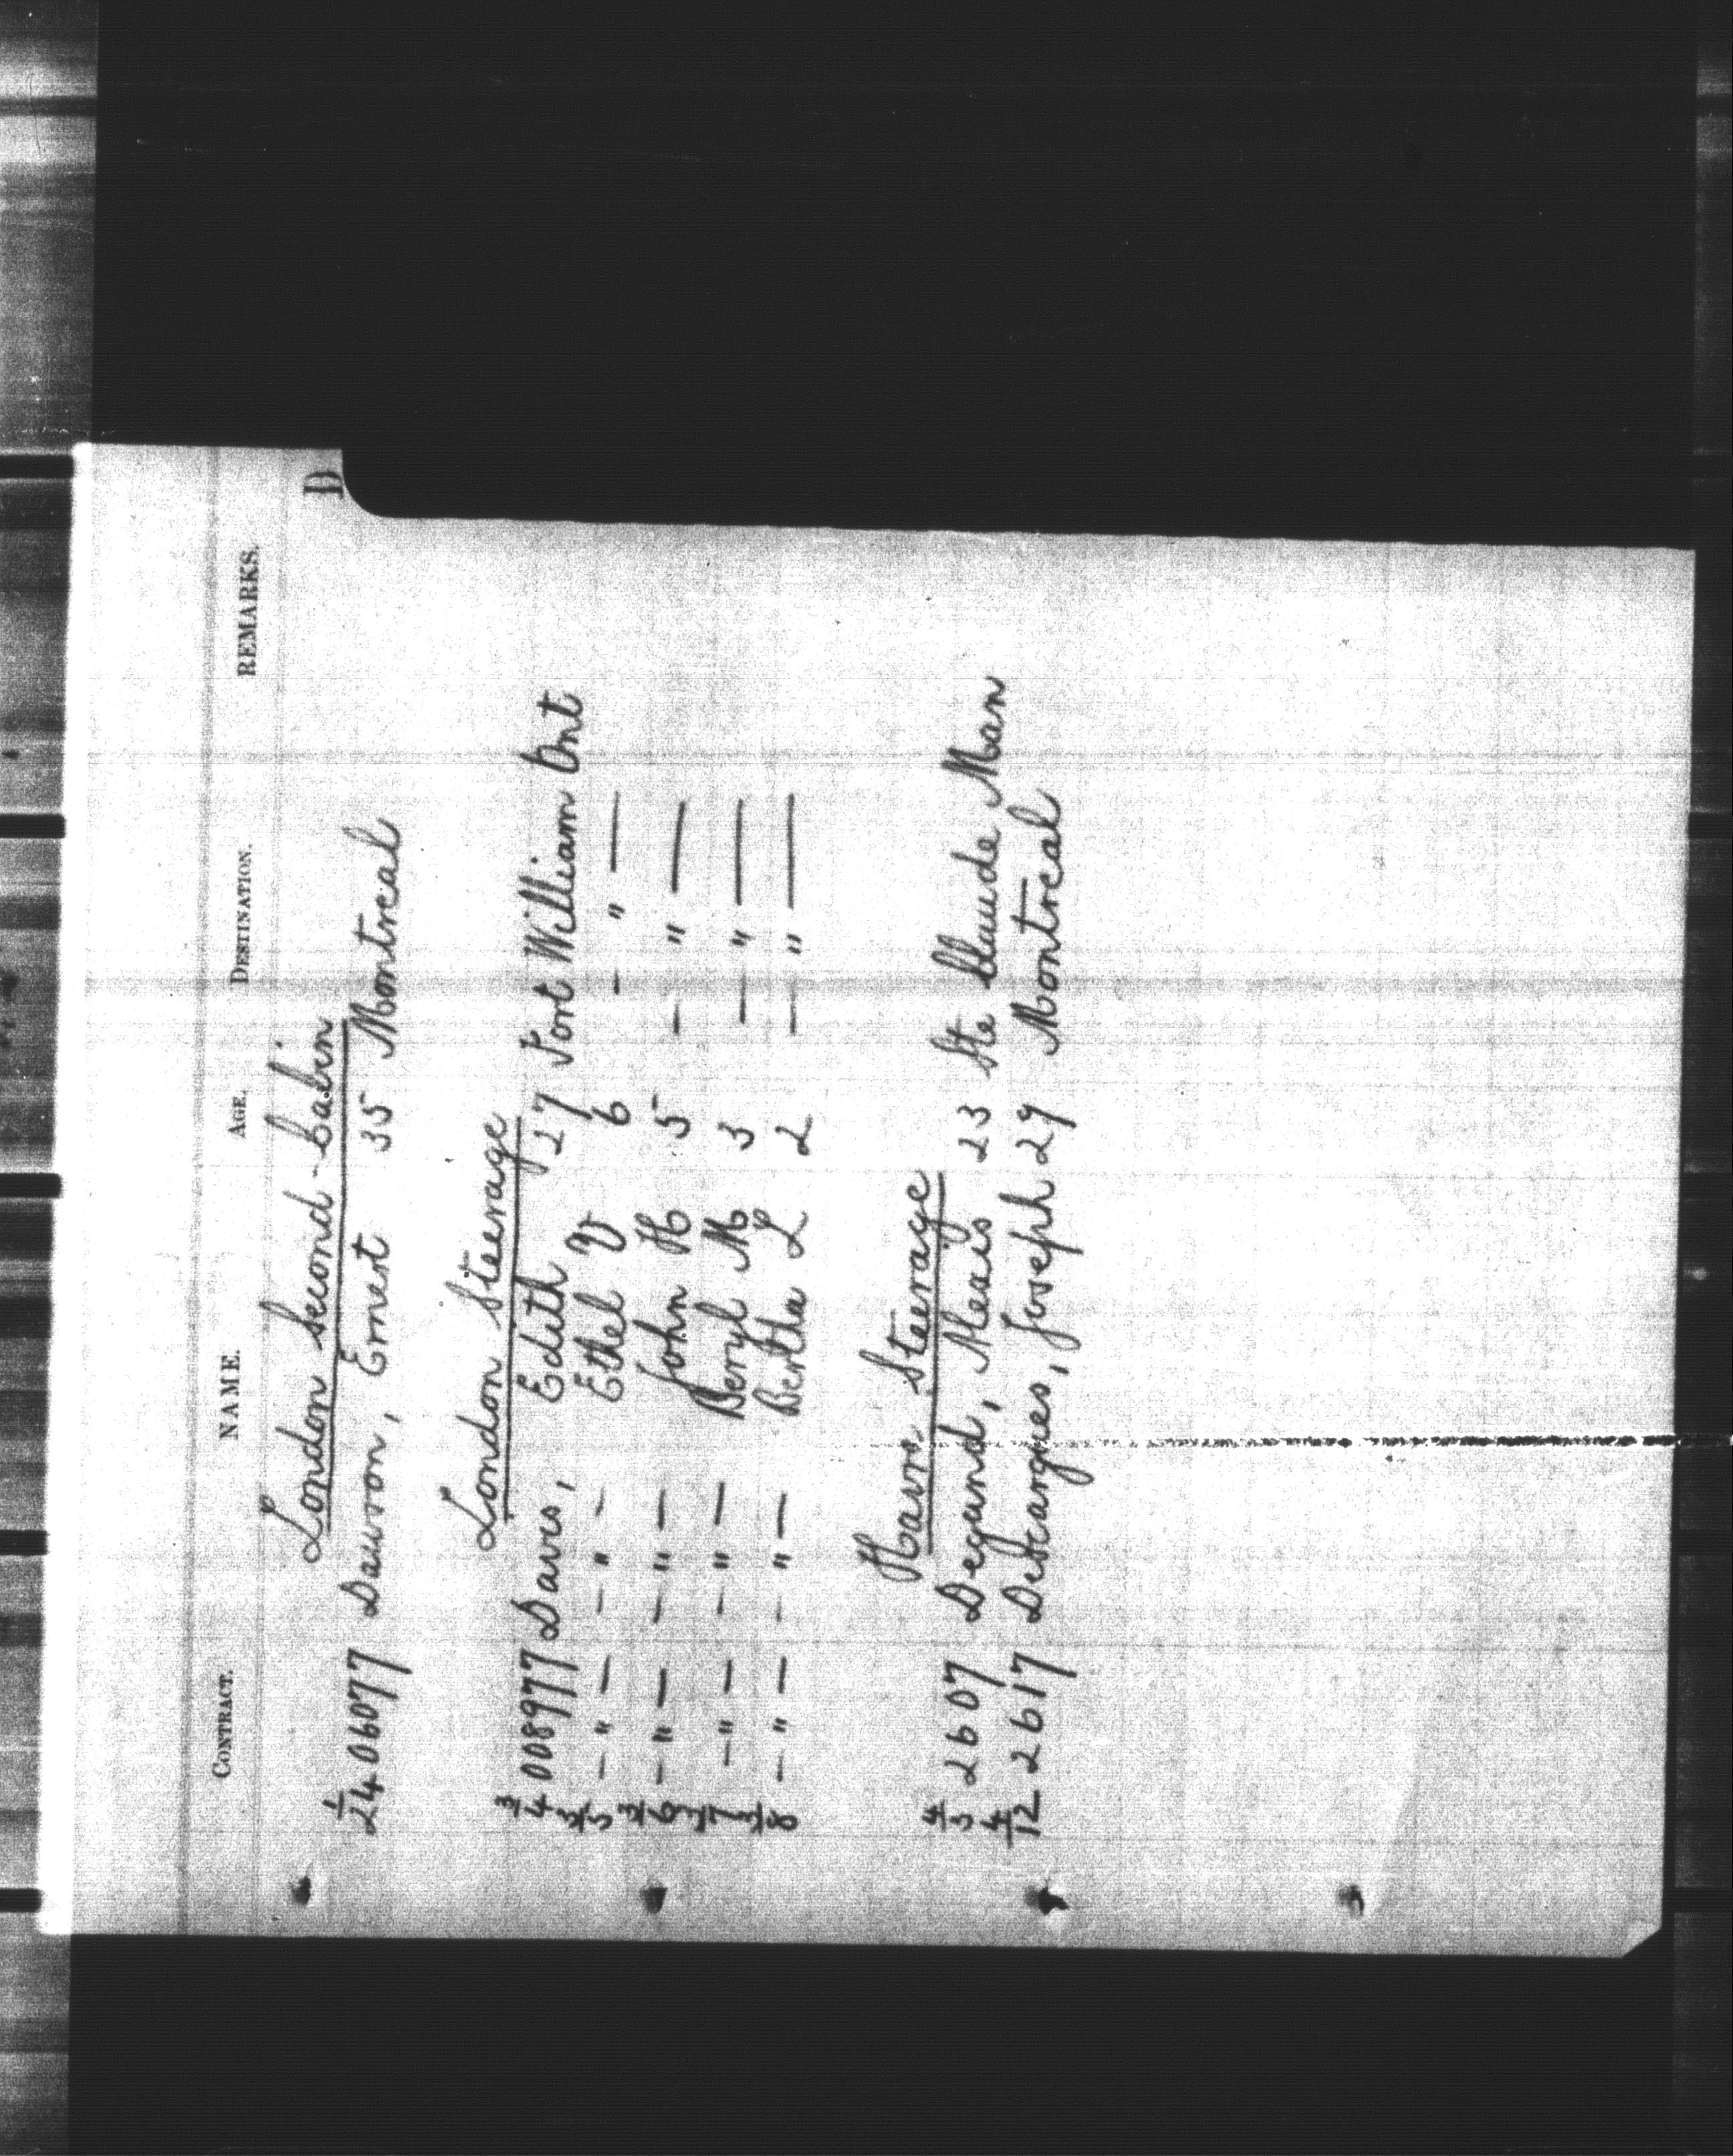 CONTRACT. NAME. AGE. DESTINATION. REMARKS.
D
London Second-Cabin
1/24 06077 Dawson, Ernest 35 Montreal
London Steerage
3/4 008977 Davis, Edith 27 Fort William Ont
3/5 — " — — " — Ethel V 6 — " —
3/6 — " — — " — John H 5 — " —
3/7 — " — — " — Beryl M 3 — " —
3/8 — " — — " — Bertha L 2 — " —
Havre Steerage
4/5 2607 Degand, Alexis 23 Ste Claude Man
4/12 2617 Descarques, Joseph 29 Montreal